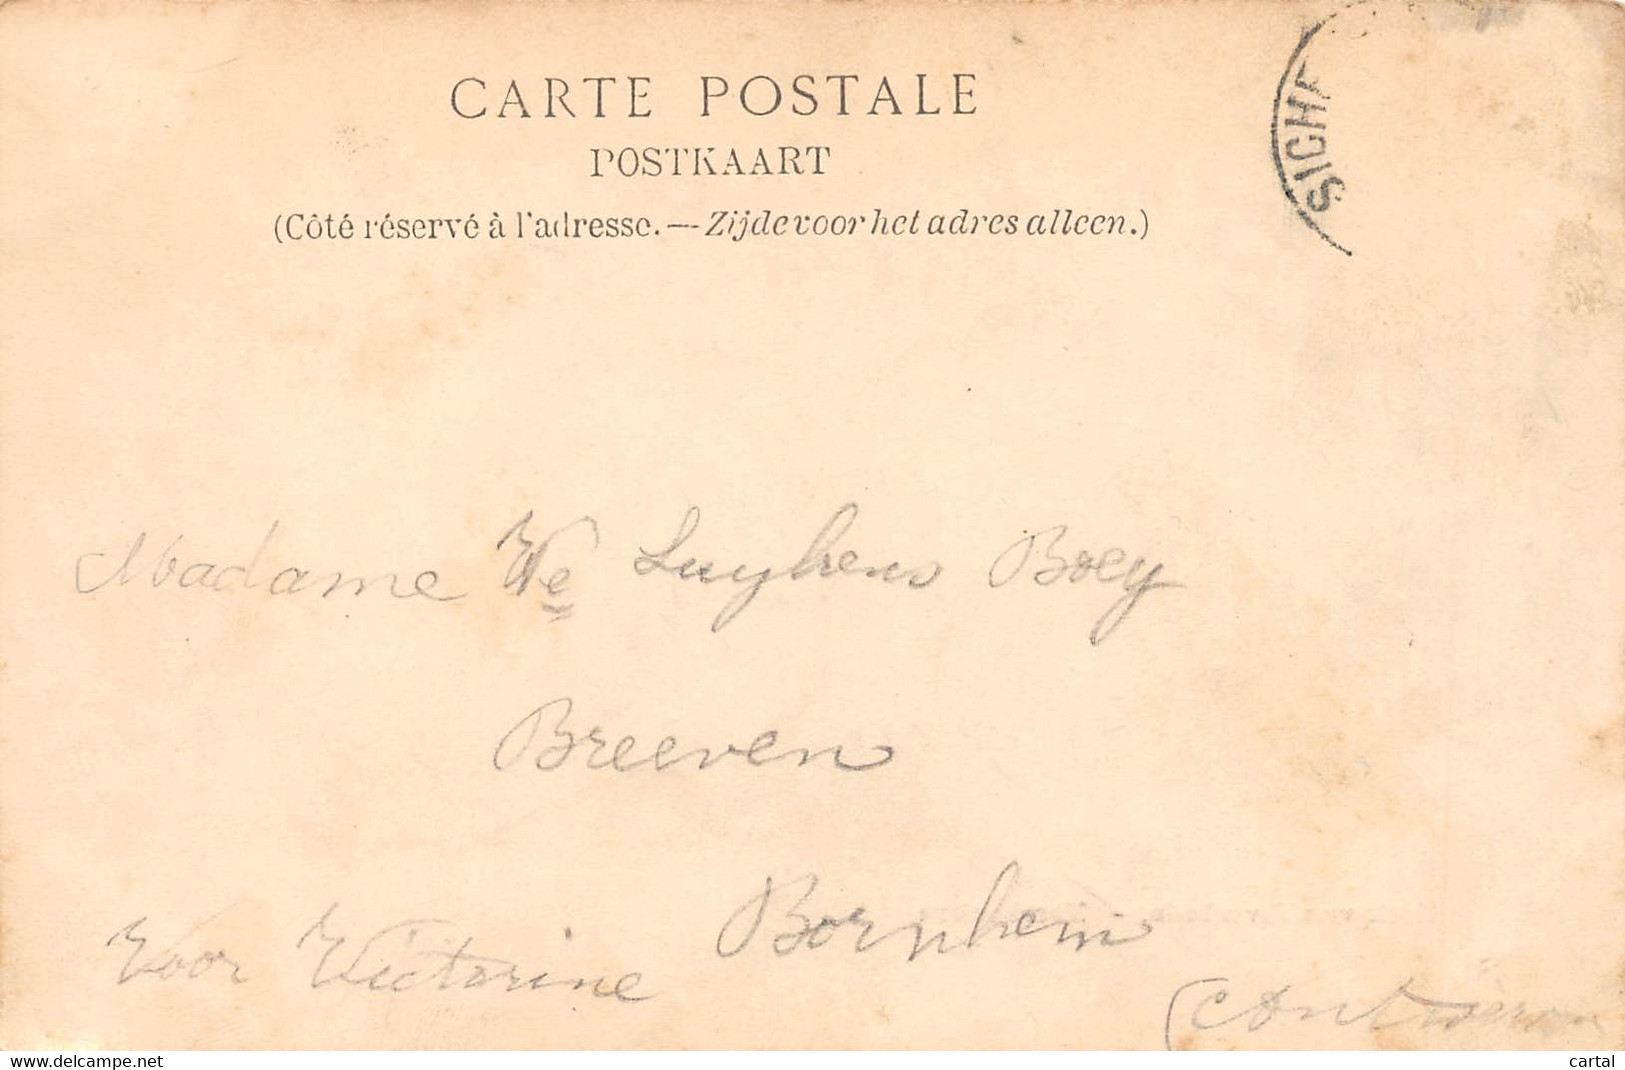 CARTE POSTALE
POSTKAART
(Côté réservé à l'adresse. — Zijde voor het adres alleen.)
SICHE
Madame Ve Luykens Boey
Breeven
Bornhem
Voor Victorine
(Antwerpen
delcampe.net
cartal